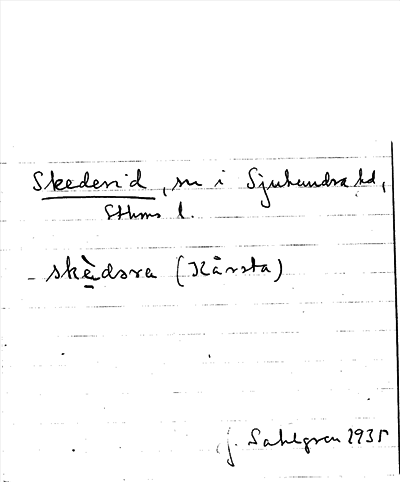 Skederid, sn i Sjuhundra hd,
Sthms l.
- skèdsra (Kårsta)
J. Sahlgren 1935